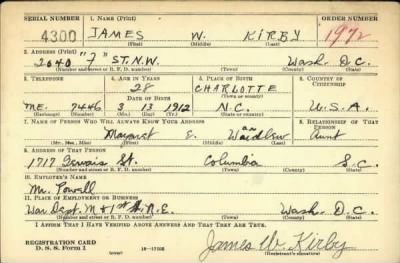 SERIAL NUMBER 1. NAME (Print) ORDER NUMBER
4300 JAMES W. KIRBY 1972
(First) (Middle) (Last)
2. ADDRESS (Print)
2040 "F" ST. N.W. Wash. D.C.
(Number and street or R. F. D. number) (Town) (County) (State)
3. TELEPHONE 4. AGE IN YEARS 5. PLACE OF BIRTH 6. COUNTRY OF CITIZENSHIP
28 CHARLOTTE
DATE OF BIRTH (Town or county)
ME. 7446 3 13 1912 N.C. U.S.A.
(Exchange) (Number) (Mo.) (Day) (Yr.) (State or country)
7. NAME OF PERSON WHO WILL ALWAYS KNOW YOUR ADDRESS 8. RELATIONSHIP OF THAT PERSON
Margaret E. Aunt
(Mr., Mrs., Miss) (First) (Middle) (Last)
9. ADDRESS OF THAT PERSON
1717 Gervais St. Columbia S.C.
(Number and street or R. F. D. number) (Town) (County) (State)
10. EMPLOYER'S NAME
Mr. Powell
11. PLACE OF EMPLOYMENT OR BUSINESS
War Dept. M & 1st St. N.E. Wash. D.C.
(Number and street or R. F. D. number) (Town) (County) (State)
I AFFIRM THAT I HAVE VERIFIED ABOVE ANSWERS AND THAT THEY ARE TRUE.
REGISTRATION CARD
D. S. S. Form 1 16-17105 James W. Kirby
(Registrant's signature)